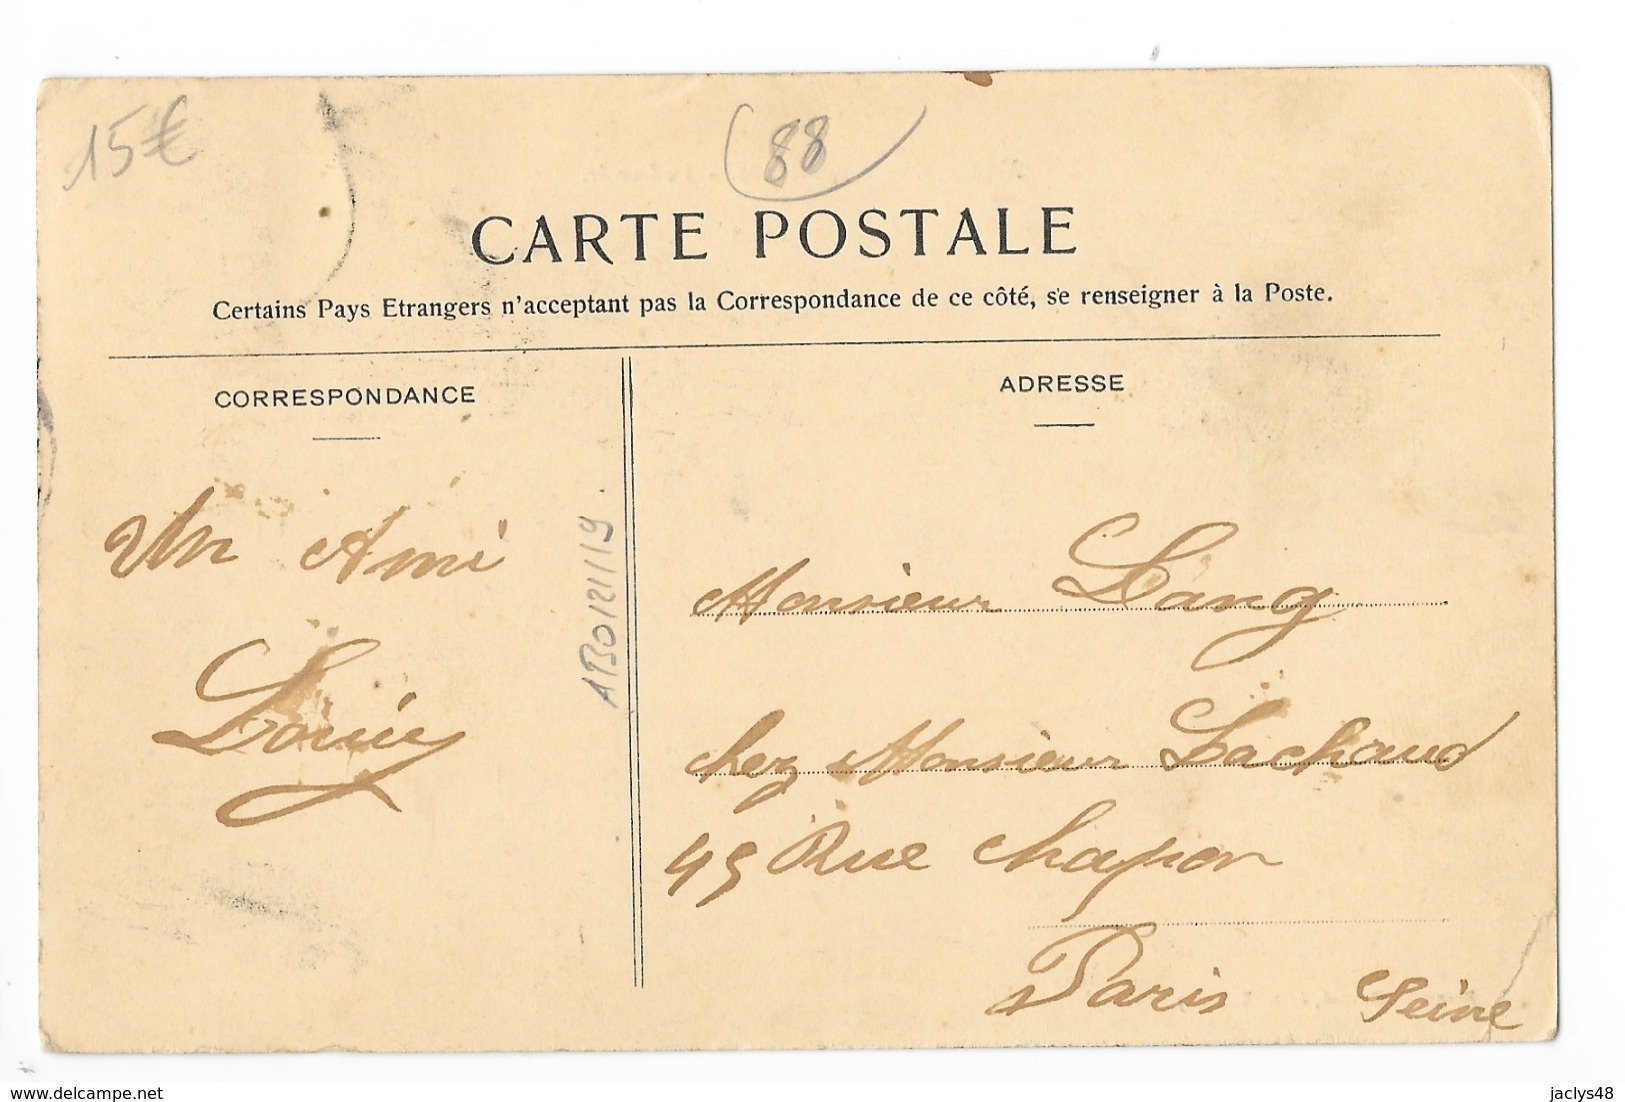 15€
88
CARTE POSTALE
Certains Pays Etrangers n'acceptant pas la Correspondance de ce côté, se renseigner à la Poste.
CORRESPONDANCE
Un Ami
Louis
ABO121119
ADRESSE
Monsieur Lang
chez Monsieur Lachaud
49 Rue Chapon
Paris Seine
www.delcampe.net
jaclys48